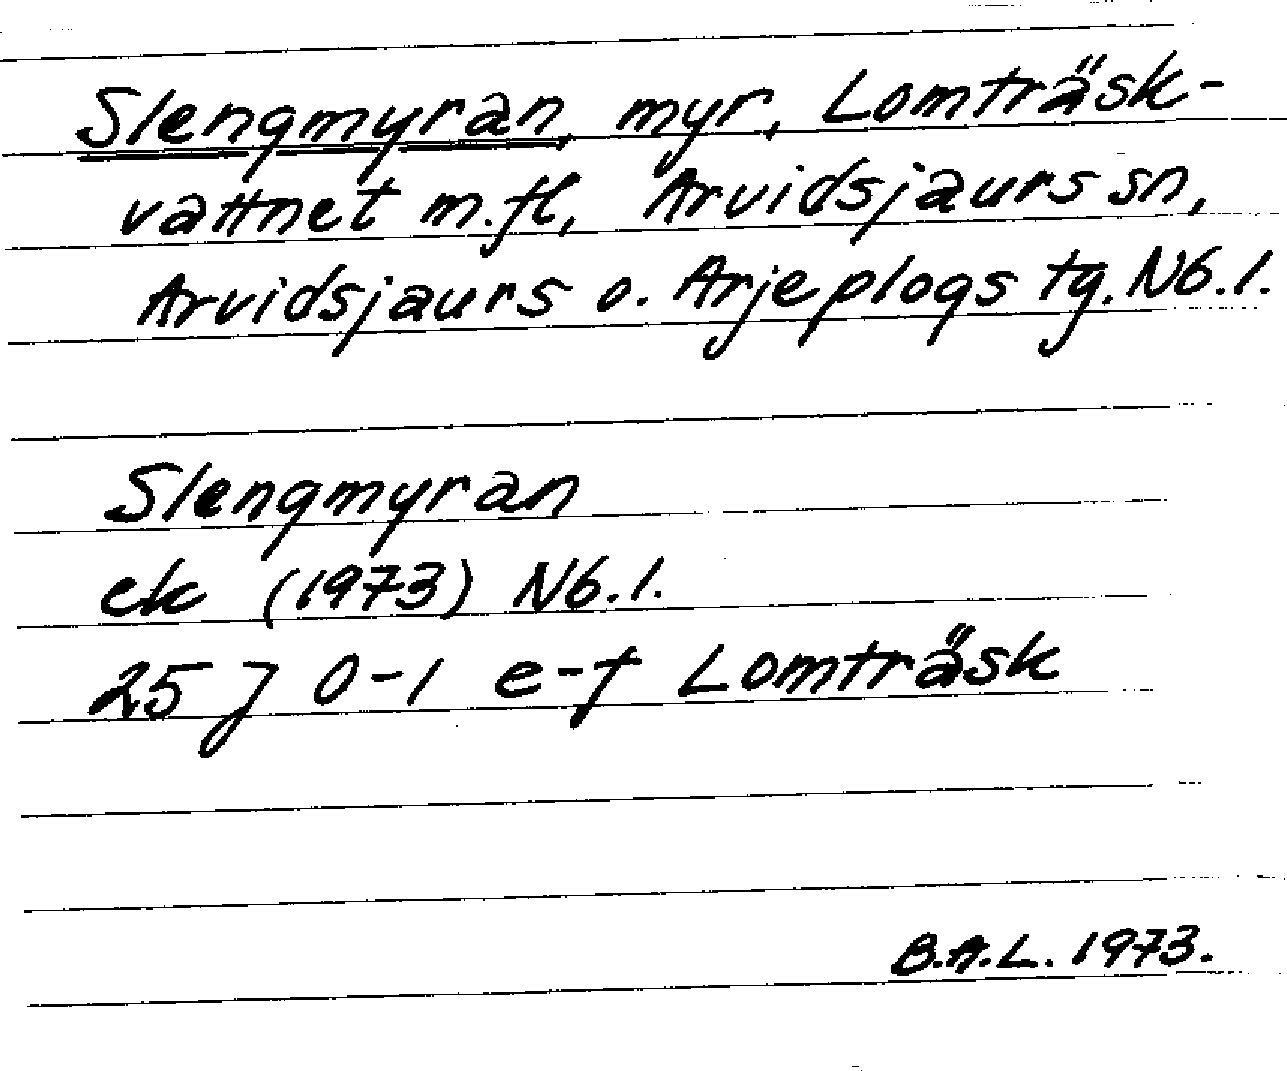 Slengmyran, myr, Lomträsk-
vattnet m.fl, Arvidsjaurs sn,
Arvidsjaurs o. Arjeplogs tg. Nb.l.
Slengmyran
ek (1973) Nb.l.
25 J 0-1 e-f Lomträsk
B.A.L. 1973.